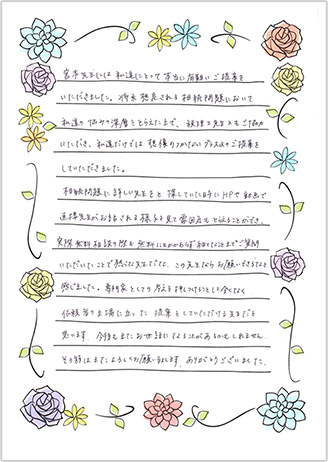 宮本先生には 私達にとって 本当に有難い ご提案を
いただきました。将来 想定される 相続問題において
私達の 悩みの深層をとらえた上で、税理士先生ともご協力
いただき、私達だけでは 想像のつかないプラスαのご提案を
していただきました。
相続問題に詳しい先生をと 探していた時にHPや動画で
直接先生がお話される様子を見て雰囲気もとらえることができ、
実際無料相談の際も無料にもかかわらず 細かなことまでご質問
いただいたことで 熱心な先生だなと、この先生ならお願いできるなと
感じました。専門家としての考えを押しつけることは全くなく
依頼者の立場に立った 提案をしていただける先生だと
思います。今後も またお世話になることがあるかもしれません。
その時はまたよろしくお願い致します。ありがとうございました。